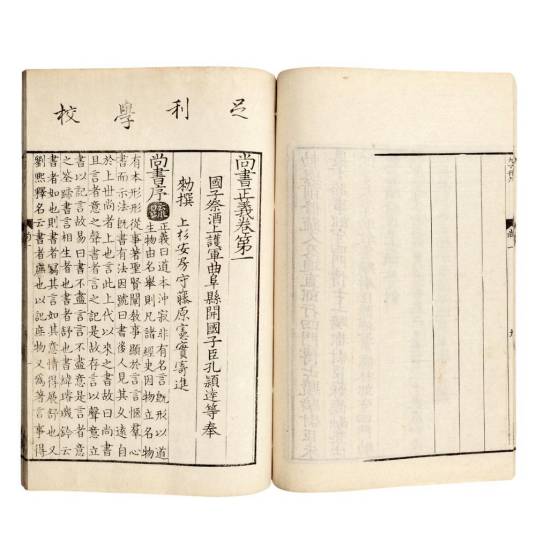 足利學校
尚書正義卷第一
國子祭酒上護軍曲阜縣開國子臣孔穎達等奉
勑撰 上杉安房守藤原憲實寄進
尚書序 疏 正義曰道本沖寂非有名言旣形以道
生物由名舉則凡諸經史因物立名物
有本形形從事著聖賢闡教事顯於言言愜羣心
書而示法旣書有法因號曰書後人見其久遠自
於上世尚者上也言此上代以來之書故曰尚書
且言者意之聲書者言之記是故存言以聲意立
書以記言故易曰書不盡言言不盡意是言者意
之筌蹄書言相生者也書者舒也書緯璿璣鈐云
書者如也則書者寫其言如其意情得展舒也又
劉熙釋名云書者庶也以記庶物又爲著言事得